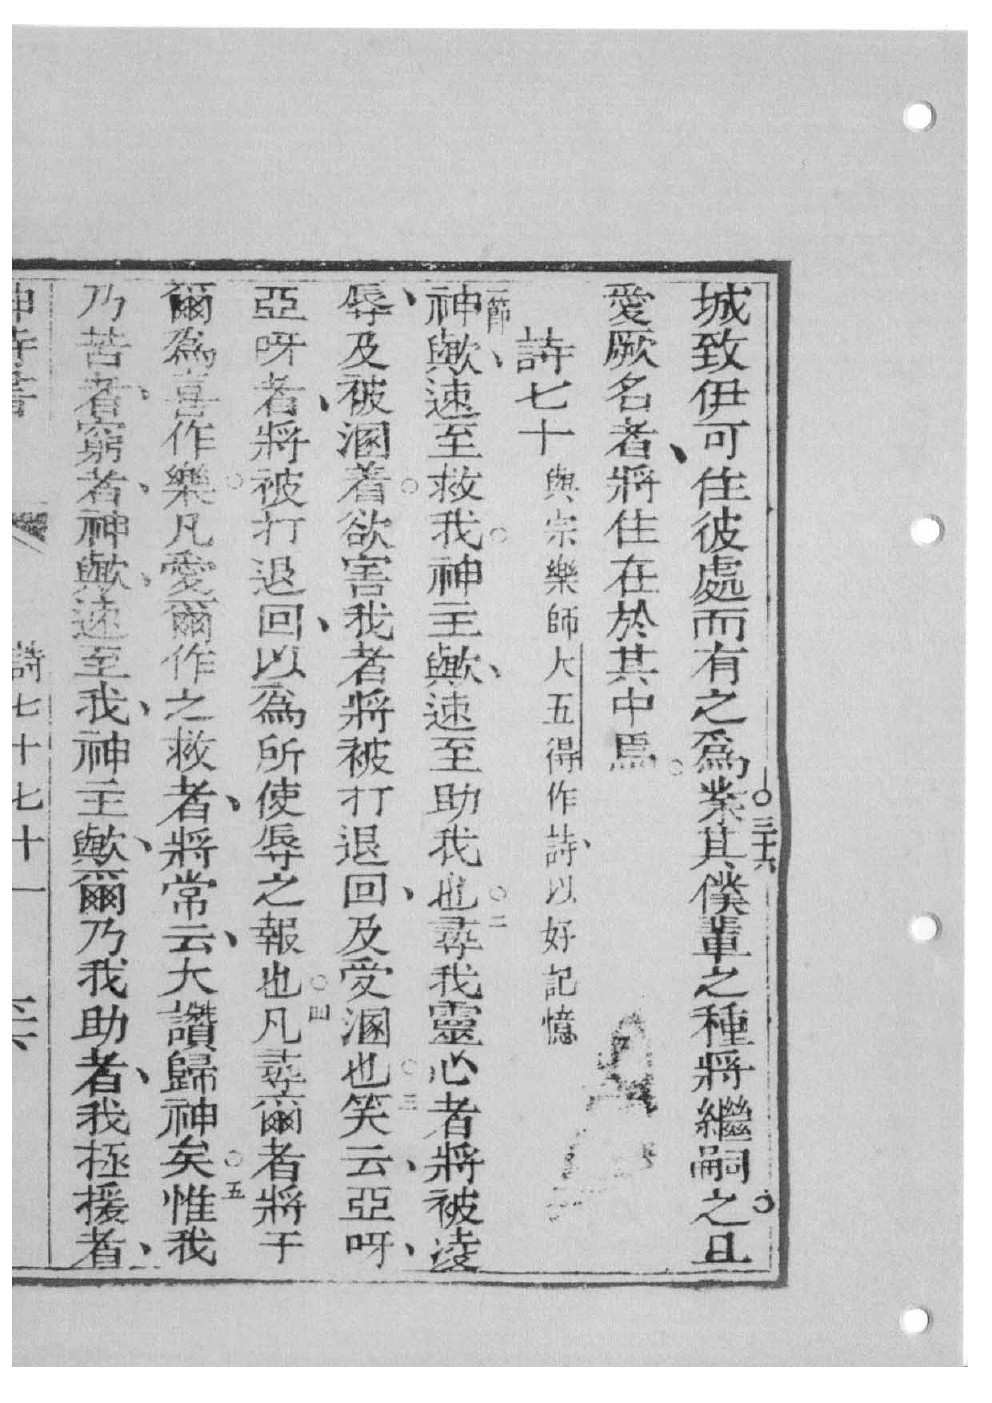 城致伊可住彼處而有之爲業○三十六其僕輩之種將繼嗣之○且
愛厥名者、將住在於其中焉○
詩七十 與宗樂師大五得作詩、以好記憶
一節神歟、速至救我○神主歟、速至助我也○二尋我靈心者將被凌
辱、及被溷着○欲害我者將被打退回、及受溷也○三笑云、亞呀、
亞呀者、將被打退回、以爲所使辱之報也○四凡尋爾者將于
爾爲喜作樂○凡愛爾作之救者、將常云、大讚歸神矣○五惟我
乃苦者、窮者、神歟、速至我、神主歟、爾乃我助者、我拯援者、
神詩書 詩七十七十一